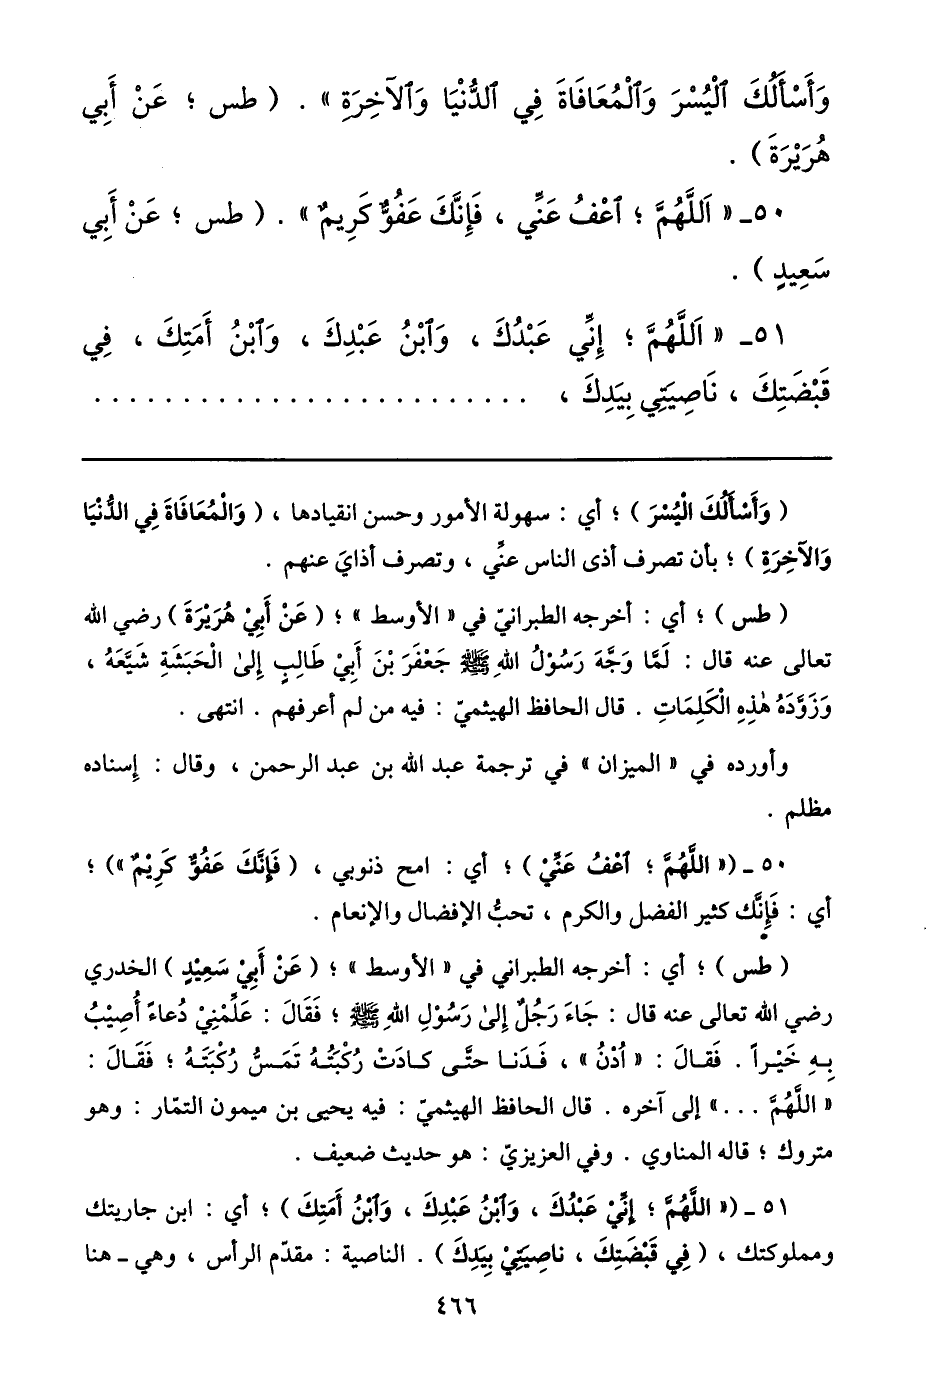 وَأَسْأَلُكَ ٱلْيُسْرَ وَٱلْمُعَافَاةَ فِي ٱلدُّنْيَا وَٱلآخِرَةِ » . ( طس ؛ عَنْ أَبِي
هُرَيْرَةَ ) .
٥٠ـ « اَللَّهُمَّ ؛ ٱعْفُ عَنِّي ، فَإِنَّكَ عَفُوٌّ كَرِيمٌ » . ( طس ؛ عَنْ أَبِي
سَعِيدٍ ) .
٥١ـ « اَللَّهُمَّ ؛ إِنِّي عَبْدُكَ ، وَٱبْنُ عَبْدِكَ ، وَٱبْنُ أَمَتِكَ ، فِي
قَبْضَتِكَ ، نَاصِيَتِي بِيَدِكَ ، . . . . . . . . . . . . . . . . . . . . . . . . .
( وَأَسْأَلُكَ الْيُسْرَ ) ؛ أي : سهولة الأمور وحسن انقيادها ، ( وَالْمُعَافَاةَ فِي الدُّنْيَا
وَالآخِرَةِ ) ؛ بأن تصرف أذى الناس عنِّي ، وتصرف أذايَ عنهم .
( طس ) ؛ أي : أخرجه الطبرانيّ في « الأوسط » ؛ ( عَنْ أَبِيْ هُرَيْرَةَ ) رضي الله
تعالى عنه قال : لَمَّا وَجَّهَ رَسُوْلُ اللهِ ﷺ جَعْفَرَ بْنَ أَبِيْ طَالِبٍ إِلىٰ الْحَبَشَةِ شَيَّعَهُ ،
وَزَوَّدَهُ هٰذِهِ الْكَلِمَاتِ . قال الحافظ الهيثميّ : فيه من لم أعرفهم . انتهى .
وأورده في « الميزان » في ترجمة عبد الله بن عبد الرحمن ، وقال : إسناده
مظلم .
٥٠ ـ (« اللَّهُمَّ ؛ ٱعْفُ عَنِّيْ ) ؛ أي : امح ذنوبي ، ( فَإِنَّكَ عَفُوٌّ كَرِيْمٌ ») ؛
أي : فَإِنَّك كثير الفضل والكرم ، تحبُّ الإفضال والإنعام .
( طس ) ؛ أي : أخرجه الطبراني في « الأوسط » ؛ ( عَنْ أَبِيْ سَعِيْدٍ ) الخدري
رضي الله تعالى عنه قال : جَاءَ رَجُلٌ إِلىٰ رَسُوْلِ اللهِ ﷺ ؛ فَقَالَ : عَلِّمْنِيْ دُعاءً أُصِيْبُ
بِهِ خَيْراً . فَقالَ : « اُدْنُ » ، فَدَنا حتَّى كادَتْ رُكْبَتُهُ تَمَسُّ رُكْبَتَهُ ؛ فَقَالَ :
« اللَّهُمَّ ... » إلى آخره . قال الحافظ الهيثميّ : فيه يحيى بن ميمون التمّار : وهو
متروك ؛ قاله المناوي . وفي العزيزيّ : هو حديث ضعيف .
٥١ ـ (« اللَّهُمَّ ؛ إِنِّيْ عَبْدُكَ ، وَٱبْنُ عَبْدِكَ ، وَٱبْنُ أَمَتِكَ ) ؛ أي : ابن جاريتك
ومملوكتك ، ( فِي قَبْضَتِكَ ، ناصِيَتِيْ بِيَدِكَ ) . الناصية : مقدّم الرأس ، وهي ـ هنا
٤٦٦